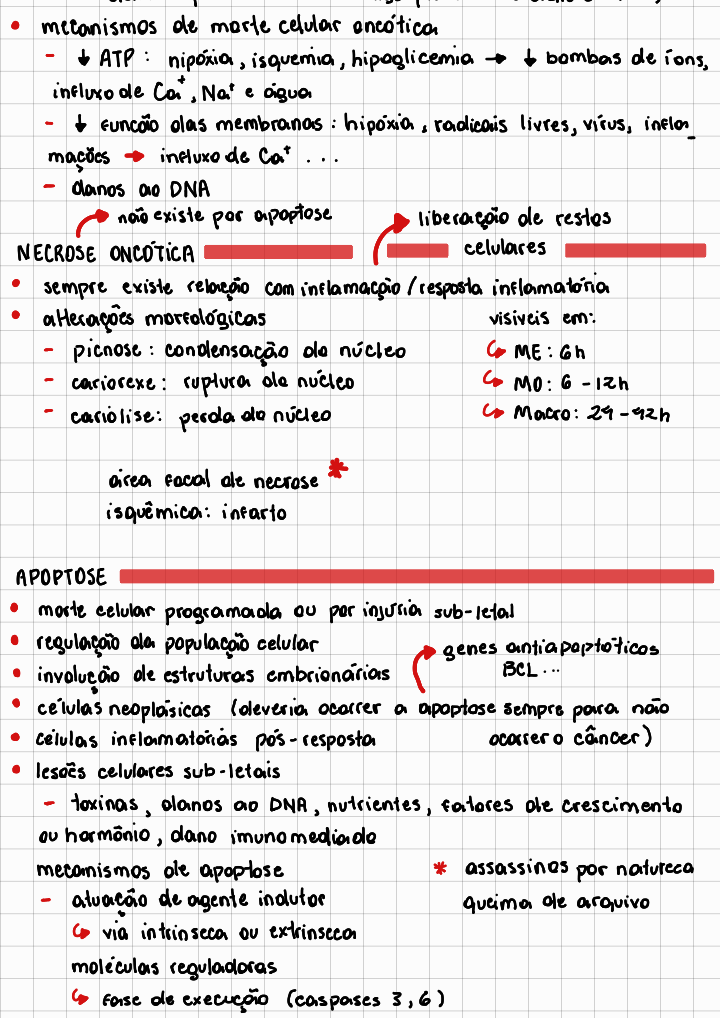 • mecanismos de morte celular oncótica
- ↓ ATP: hipóxia, isquemia, hipoglicemia → ↓ bombas de íons,
influxo de Ca⁺, Na⁺ e água
- ↓ função das membranas: hipóxia, radicais livres, vírus, infla_
mações → influxo de Ca⁺ ...
- danos ao DNA
não existe por apoptose
liberação de restos
celulares
NECROSE ONCÓTICA
• sempre existe relação com inflamação/resposta inflamatória
• alterações morfológicas
visíveis em:
- picnose: condensação do núcleo
ME: 6h
- cariorexe: ruptura do núcleo
MO: 6-12h
- cariólise: perda do núcleo
Macro: 24-42h
área focal de necrose *
isquêmica: infarto
APOPTOSE
• morte celular programada ou por injúria sub-letal
• regulação da população celular
genes antiapoptóticos
BCL ...
• involução de estruturas embrionárias
• células neoplásicas (deveria ocorrer a apoptose sempre para não
ocorrer o câncer)
• células inflamatórias pós-resposta
• lesões celulares sub-letais
- toxinas, danos ao DNA, nutrientes, fatores de crescimento
ou hormônio, dano imunomediado
mecanismos de apoptose
* assassinas por natureza
queima de arquivo
- atuação de agente indutor
via intrínseca ou extrínseca
moléculas reguladoras
fase de execução (caspases 3,6)